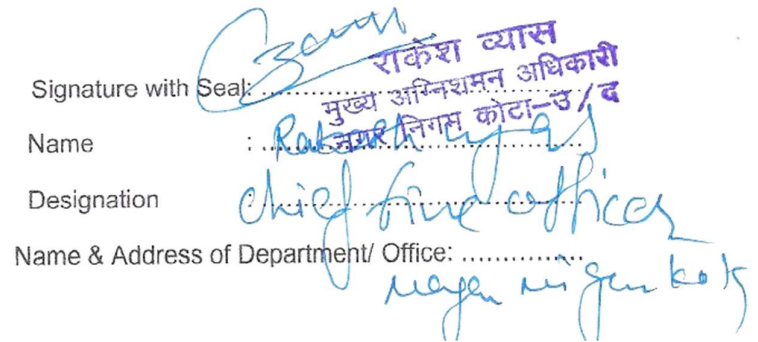 राकेश व्यास
Signature with Seal: ........................
मुख्य अग्निशमन अधिकारी
नगर निगम कोटा-उ/द
Name : Rakesh vyas
Designation : chief fire officer
Name & Address of Department/ Office: ...............
nagar nigam kota